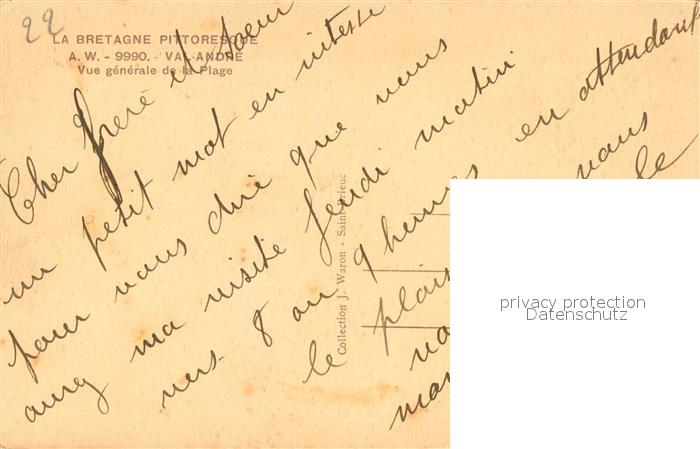 22
LA BRETAGNE PITTORESQUE
A. W. - 9990. - VAL-ANDRÉ
Vue générale de la Plage
Cher frere et soeur
un petit mot en vitesse
pour vous dire que vous
aurez ma visite Jeudi matin
vers 8 ou 9 heures en attendant
le plais vous
le
Collection J. Waron - Saint-Brieuc
privacy protection
Datenschutz